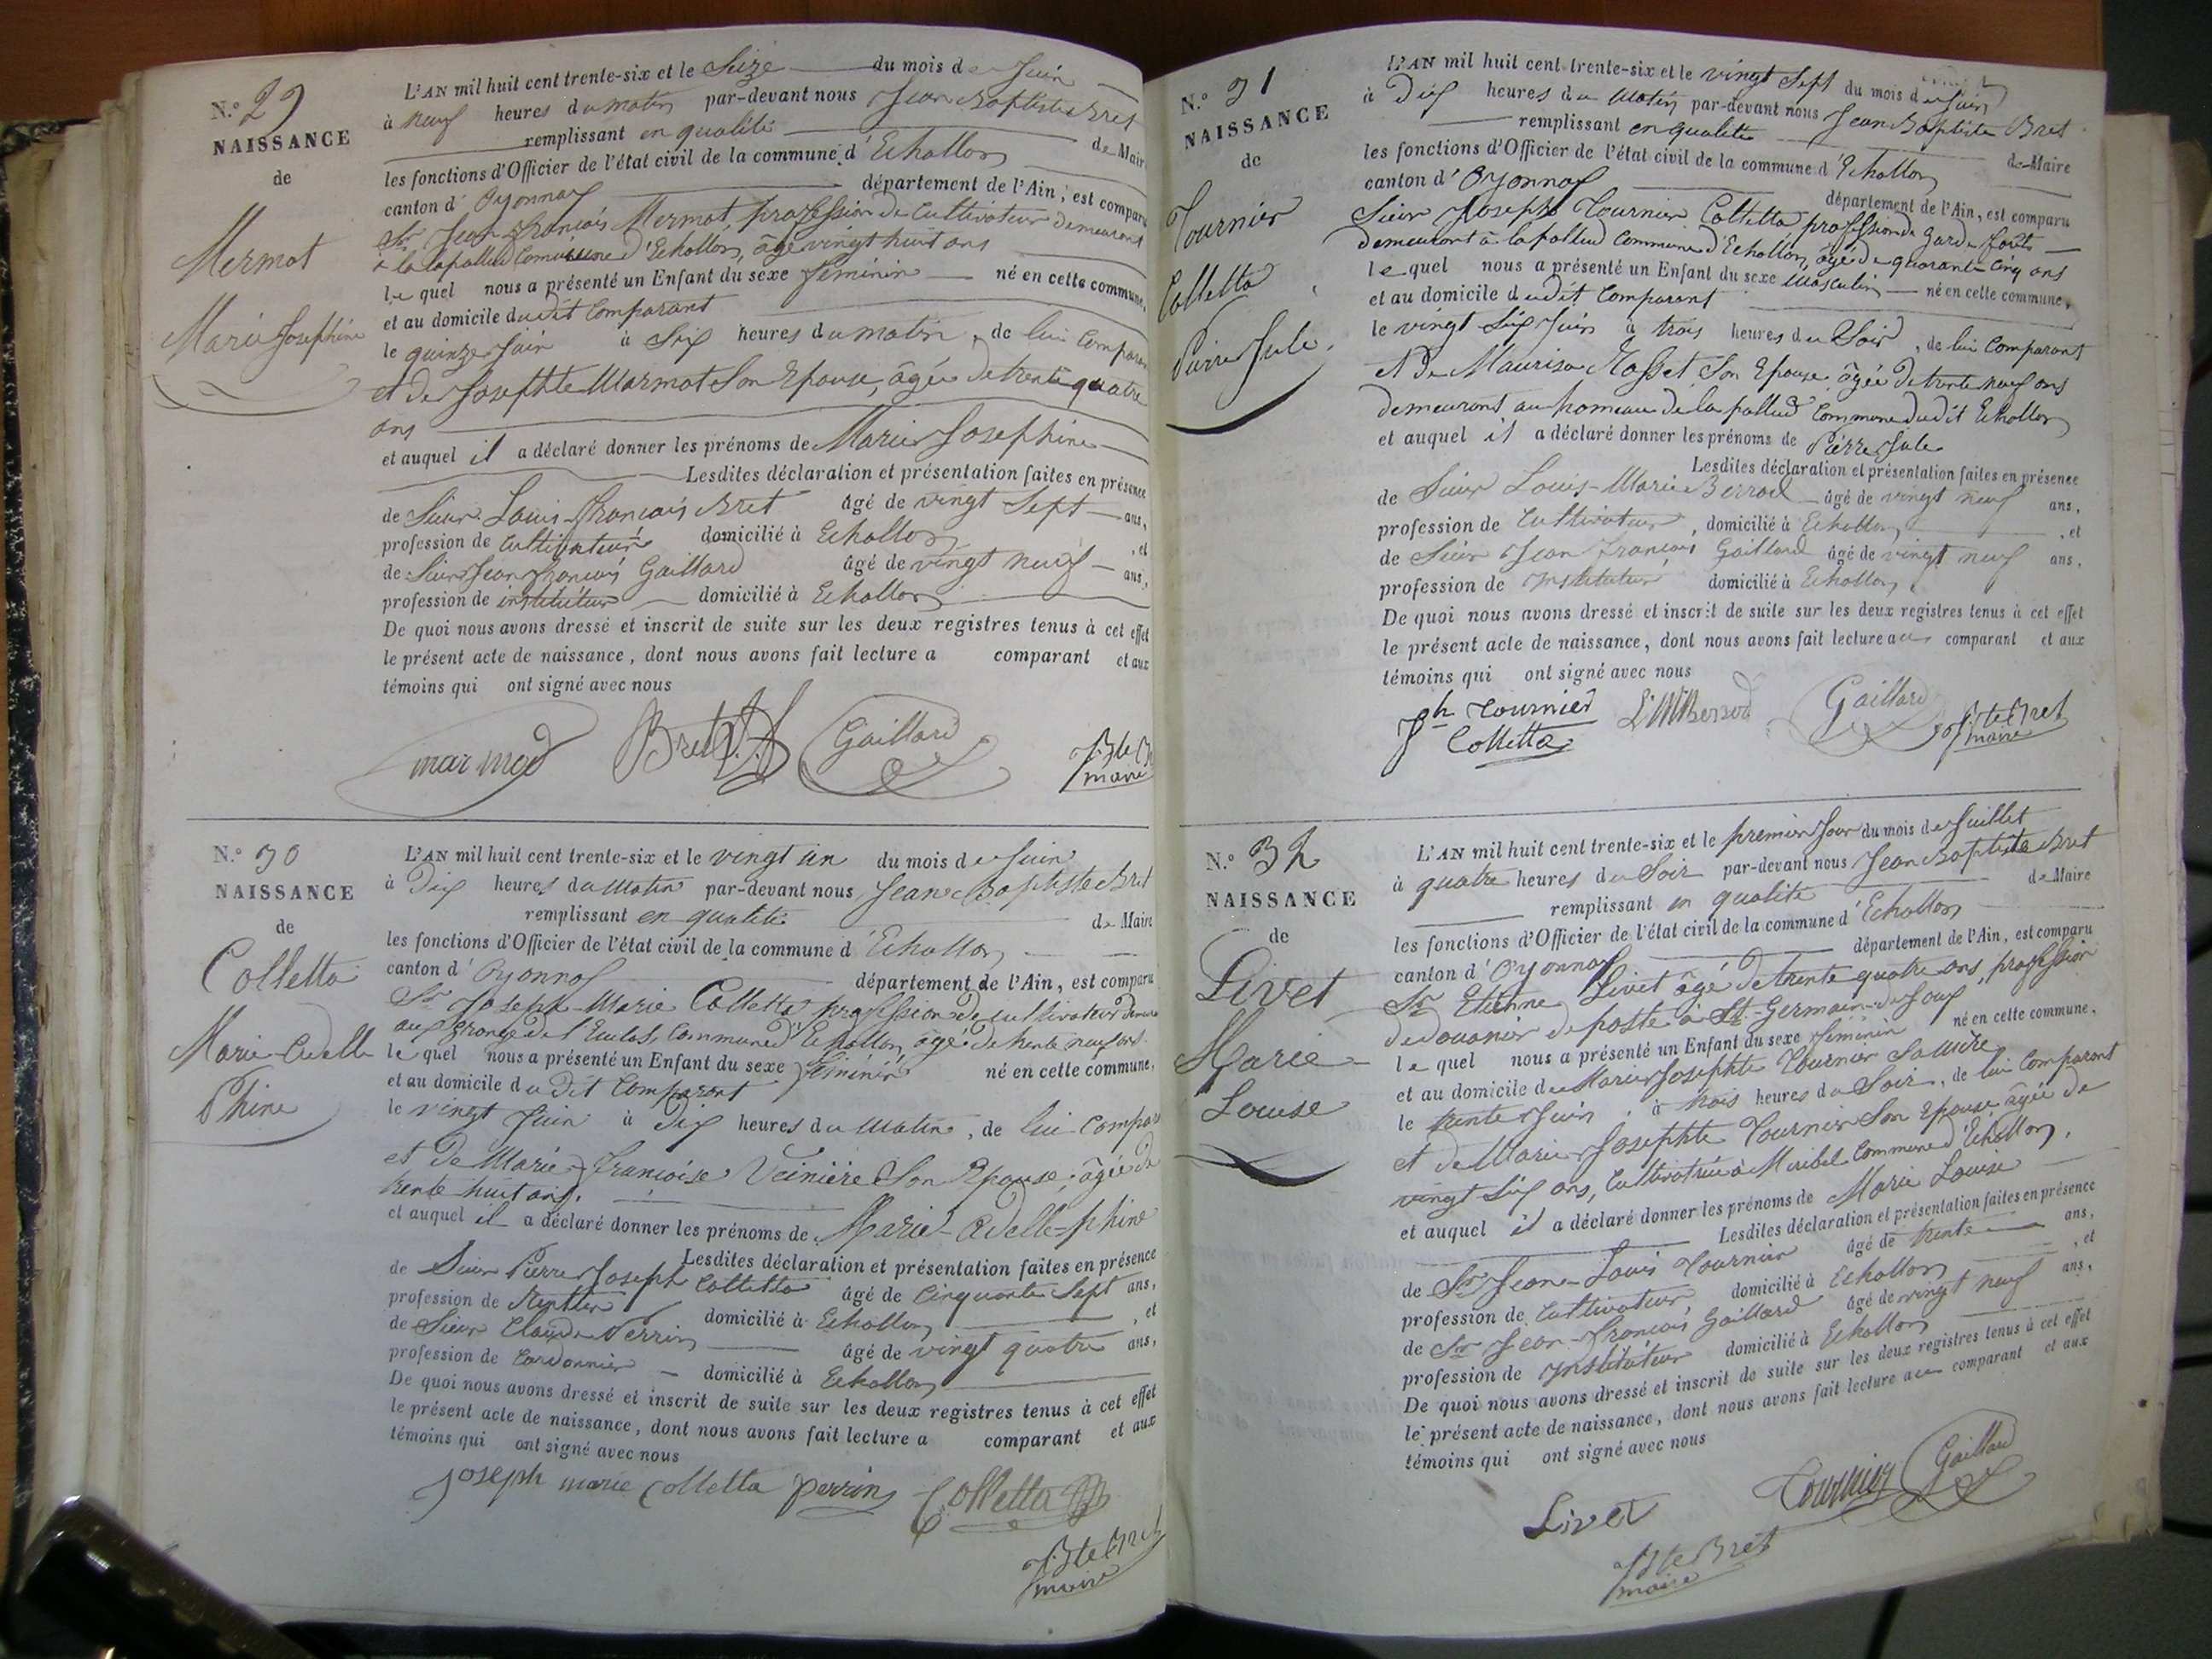 N.° 29
NAISSANCE
de
Mermot
Marie Josephine
L'AN mil huit cent trente-six et le Seize du mois de Juin
à neuf heures du matin par-devant nous Jean Baptiste Bret
remplissant en qualité de Maire
les fonctions d'Officier de l'état civil de la commune d'Echallon
canton d'Oyonnax département de l'Ain, est comparu
Sr Jean François Mermot, profession de Cultivateur demeurant
à la lapallud Commune d'Echallon, âgé vingt huit ans
lequel nous a présenté un Enfant du sexe féminin né en cette commune,
et au domicile dudit Comparant
le quinze Juin à Six heures du matin, de lui Comparant
et de Josephte Marmot Son Epouse, âgée de trente quatre
ans
et auquel il a déclaré donner les prénoms de Marie Josephine
Lesdites déclaration et présentation faites en présence
de Sieur Louis François Bret âgé de vingt Sept ans,
profession de Cultivateur domicilié à Echallon, et
de Sieur Jean François Gaillard âgé de vingt neuf ans,
profession de instituteur domicilié à Echallon
De quoi nous avons dressé et inscrit de suite sur les deux registres tenus à cet effet
le présent acte de naissance, dont nous avons fait lecture a comparant et aux
témoins qui ont signé avec nous
marmod Bret Gaillard
maire
N.° 30
NAISSANCE
de
Colletta
Marie-Adelle
Phine
L'AN mil huit cent trente-six et le vingt un du mois de Juin
à Dix heures du Matin par-devant nous Jean Baptiste Bret
remplissant en qualité de Maire
les fonctions d'Officier de l'état civil de la commune d'Echallon
canton d'Oyonnax département de l'Ain, est comparu
Sr Joseph-Marie Colletta profession de cultivateur
aux granges de l'Enclos, Commune d'Echallon, âgé de trente neuf ans
lequel nous a présenté un Enfant du sexe féminin né en cette commune,
et au domicile du dit Comparant
le vingt Juin à Dix heures du Matin, de lui Comparant
et de Marie-françoise Veinière Son Epouse, âgée de
trente huit ans.
et auquel il a déclaré donner les prénoms de Marie-Adelle-phine
Lesdites déclaration et présentation faites en présence
de Sieur Pierre Joseph Colletta âgé de Cinquante Sept ans,
profession de Rentier domicilié à Echallon, et
de Sieur Claude Perrin âgé de vingt quatre ans,
profession de Cordonnier domicilié à Echallon
De quoi nous avons dressé et inscrit de suite sur les deux registres tenus à cet effet
le présent acte de naissance, dont nous avons fait lecture a comparant et aux
témoins qui ont signé avec nous
joseph marie Colletta perrin Colletta
J Bte Bret
maire
N.° 31
NAISSANCE
de
Tournier
Colletta
Pierre Jule
L'AN mil huit cent trente-six et le vingt Sept du mois de Juin
à Dix heures du Matin par-devant nous Jean Baptiste Bret
remplissant en qualité de Maire
les fonctions d'Officier de l'état civil de la commune d'Echallon
canton d'Oyonnax département de l'Ain, est comparu
Sieur Joseph Tournier Colletta profession de garde forêts
demeurant à lapallud Commune d'Echallon, âgé de quarante Cinq ans
lequel nous a présenté un Enfant du sexe Masculin né en cette commune,
et au domicile dudit Comparant
le vingt Six Juin à trois heures du Soir, de lui Comparant
et de Maurise Rosset Son Epouse âgée de trente neuf ans
demeurant au hameau de la pallud Commune dudit Echallon
et auquel il a déclaré donner les prénoms de Pierre Jule
Lesdites déclaration et présentation faites en présence
de Sieur Louis-Marie Berrod âgé de vingt neuf ans,
profession de Cultivateur, domicilié à Echallon, et
de Sieur Jean François Gaillard âgé de vingt neuf ans,
profession de Instituteur domicilié à Echallon,
De quoi nous avons dressé et inscrit de suite sur les deux registres tenus à cet effet
le présent acte de naissance, dont nous avons fait lecture au comparant et aux
témoins qui ont signé avec nous
Jh tournier L M Berrod Gaillard J Bte Bret
Colletta maire
N.° 32
NAISSANCE
de
Livet
Marie-
Louise
L'AN mil huit cent trente-six et le premier Jour du mois de Juillet
à quatre heures du Soir par-devant nous Jean Baptiste Bret
remplissant en qualité de Maire
les fonctions d'Officier de l'état civil de la commune d'Echallon
canton d'Oyonnax département de l'Ain, est comparu
Sr Etienne Livet âgé de trente quatre ans, profession
de douanier de poste à St Germain-de-Joux
lequel nous a présenté un Enfant du sexe féminin né en cette commune,
et au domicile de Marie Josephte Tournier
le trente Juin à trois heures du Soir, de lui Comparant
et de Marie Josephte Tournier Son Epouse âgée de
vingt Six ans, Cultivatrice à Miribel Commune d'Echallon,
et auquel il a déclaré donner les prénoms de Marie Louise
Lesdites déclaration et présentation faites en présence
de Sr Jean-Louis Tournier âgé de trente ans,
profession de Cultivateur domicilié à Echallon, et
de Sr Jean-François Gaillard âgé de vingt neuf ans,
profession de Instituteur domicilié à Echallon
De quoi nous avons dressé et inscrit de suite sur les deux registres tenus à cet effet
le présent acte de naissance, dont nous avons fait lecture au comparant et aux
témoins qui ont signé avec nous
Livet Tournier Gaillard
J Bte Bret
maire